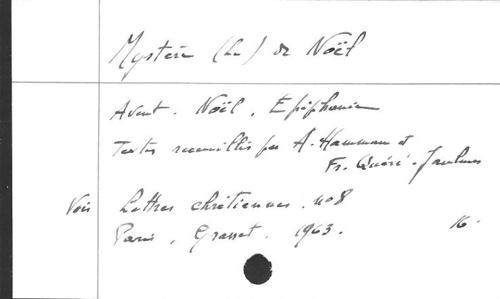 Mystère (Le) de Noël
Avent. Noël, Epiphanie
Textes recueillis par A. Hamman et
Fr. Quéré-Jaulmes
Voir Lettres chrétiennes. no 8
Paris, Grasset. 1963. 16.